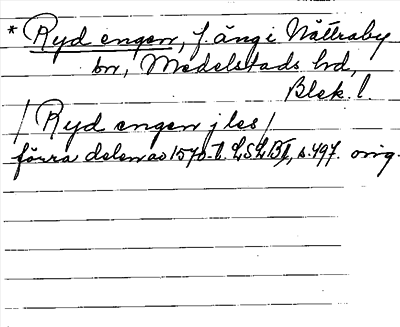 * Ryd engen, f. äng i Nättraby
bn, Medelstads hd,
Blek. l.
/ Ryd engen j les /
förra delen av 1570-t. LSLBI, s. 497. orig.